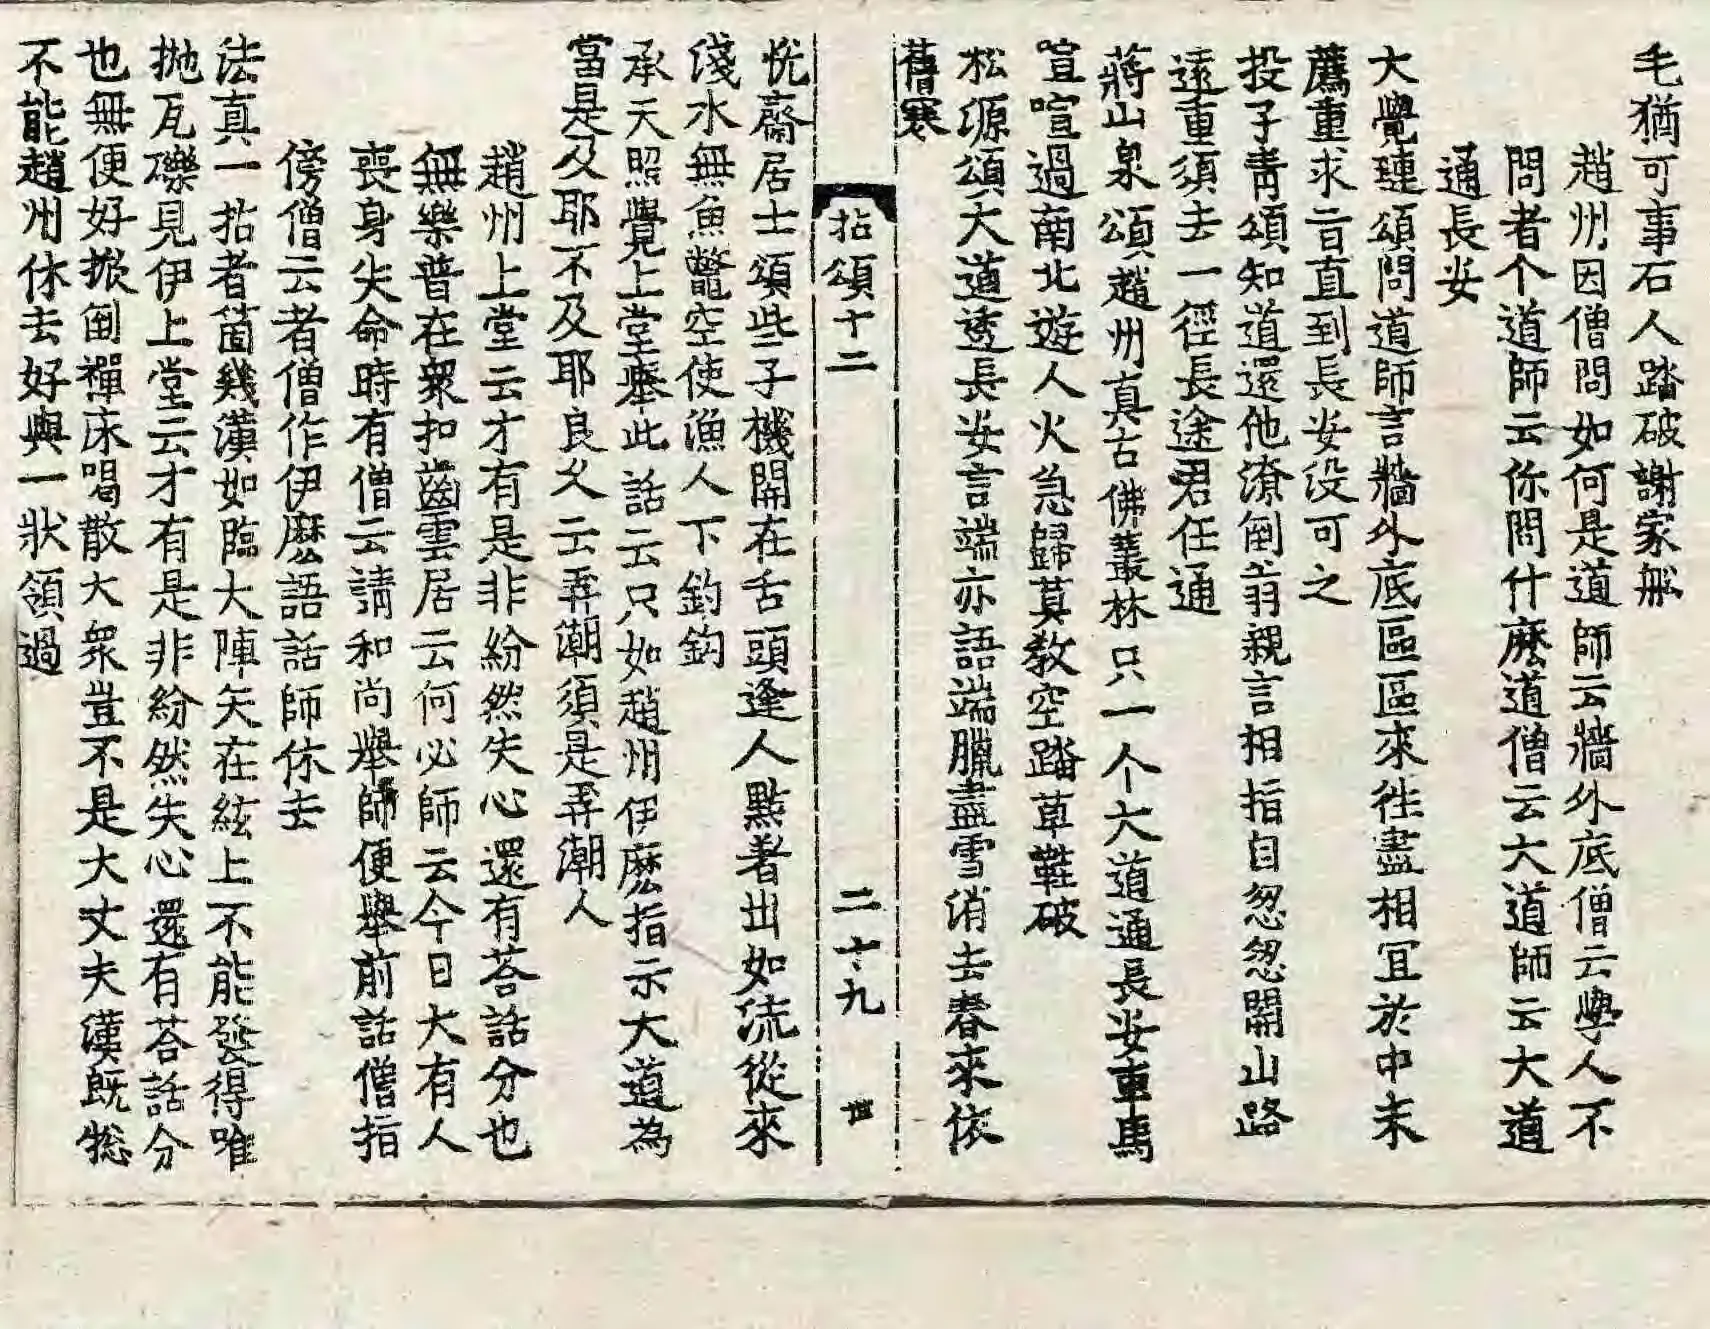 毛猶可事石人踏破謝家舩
趙州因僧問如何是道師云牆外底僧云學人不
問者个道師云你問什麽道僧云大道師云大道
通長安
大覺璉頌問道師言牆外底區區來徃盡相冝於中未
薦重求旨直到長安没可之
投子青頌知道還他潦倒翁親言相指自忽忽開山路
遠重須去一徑長途君任通
蔣山泉頌趙州真古佛叢林只一个大道通長安車馬
喧喧過南北遊人火急歸莫教空踏草鞋破
松源頌大道透長安言端亦語端臘盡雪消去春來依
舊寒
拈頌十二 二十九 世
恱齋居士頌些子機關在舌頭逢人點著出如流從來
淺水無魚鼈空使漁人下釣鈎
承天照覺上堂舉此話云只如趙州伊麽指示大道為
當是及耶不及耶良乆云弄潮須是弄潮人
趙州上堂云才有是非紛然失心還有荅話分也
無樂普在衆扣齒雲居云何必師云今日大有人
喪身失命時有僧云請和尚舉師便舉前話僧指
傍僧云者僧作伊麽語話師休去
法真一拈者箇幾漢如臨大陣矢在絃上不能發得唯
抛瓦礫見伊上堂云才有是非紛然失心還有荅話分
也無便好掀倒禪床喝散大衆豈不是大丈夫漢旣惣
不能趙州休去好與一狀領過